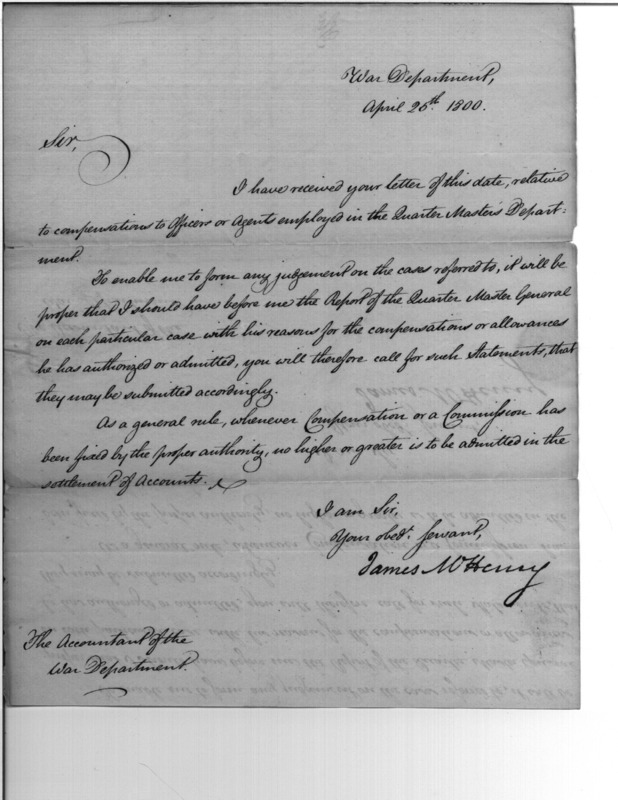 War Department,
April 26th 1800.
Sir,
I have received your letter of this date, relative
to compensations to Officers or Agents employed in the Quarter Master's Depart=
ment.
To enable me to form any judgement on the cases referred to, it will be
proper that I should have before me the Report of the Quarter Master General
on each particular case with his reasons for the compensations or allowances
he has authorized or admitted, you will therefore call for such Statements, that
they may be submitted accordingly.
As a general rule, whenever Compensation or a Commission has
been fixed by the proper authority, no higher or greater is to be admitted in the
settlement of Accounts.
I am Sir,
Your obedt. Servant,
James McHenry
The Accountant of the
War Department.